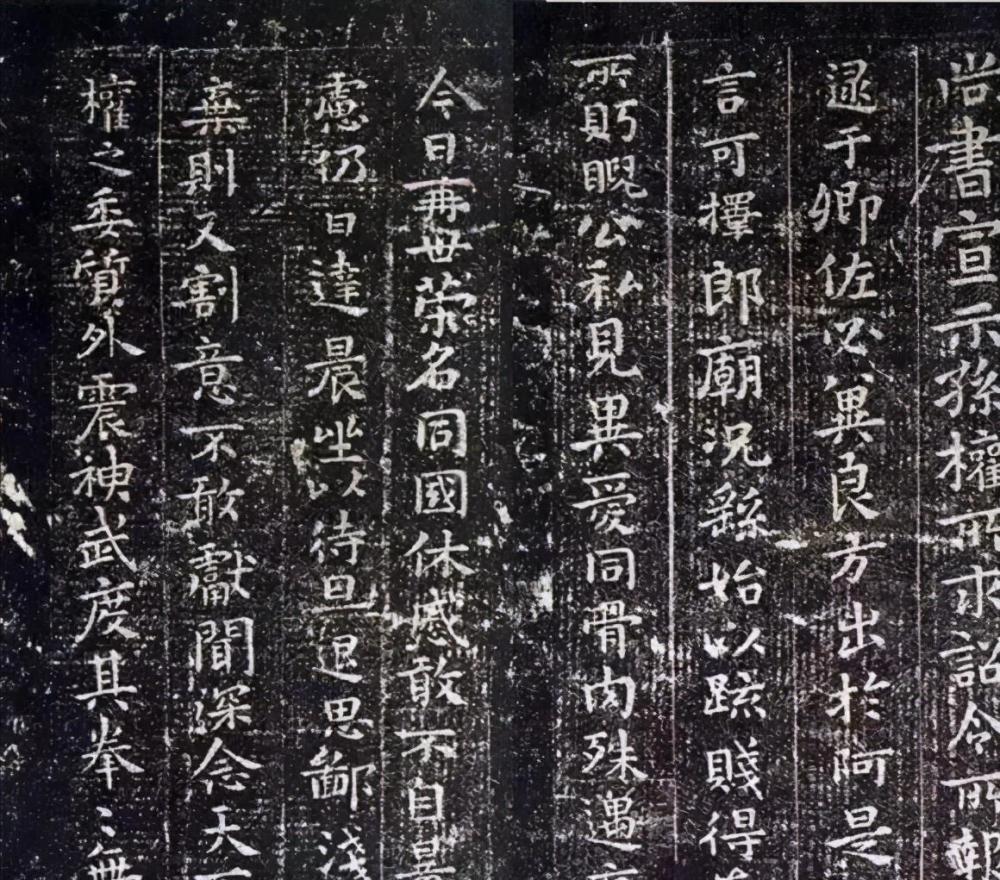 尚書宣示孫權所求詔令所報
逮于卿佐必冀良方出於阿是
言可擇郎廟況繇始以踈賤得
所眄睨公私見異愛同骨肉殊遇
今日再世荣名同國休慼敢不自量
慮仍日達晨坐以待旦退思鄙淺
棄則又割意不敢獻聞深念天下
權之委質外震神武度其拳〻無